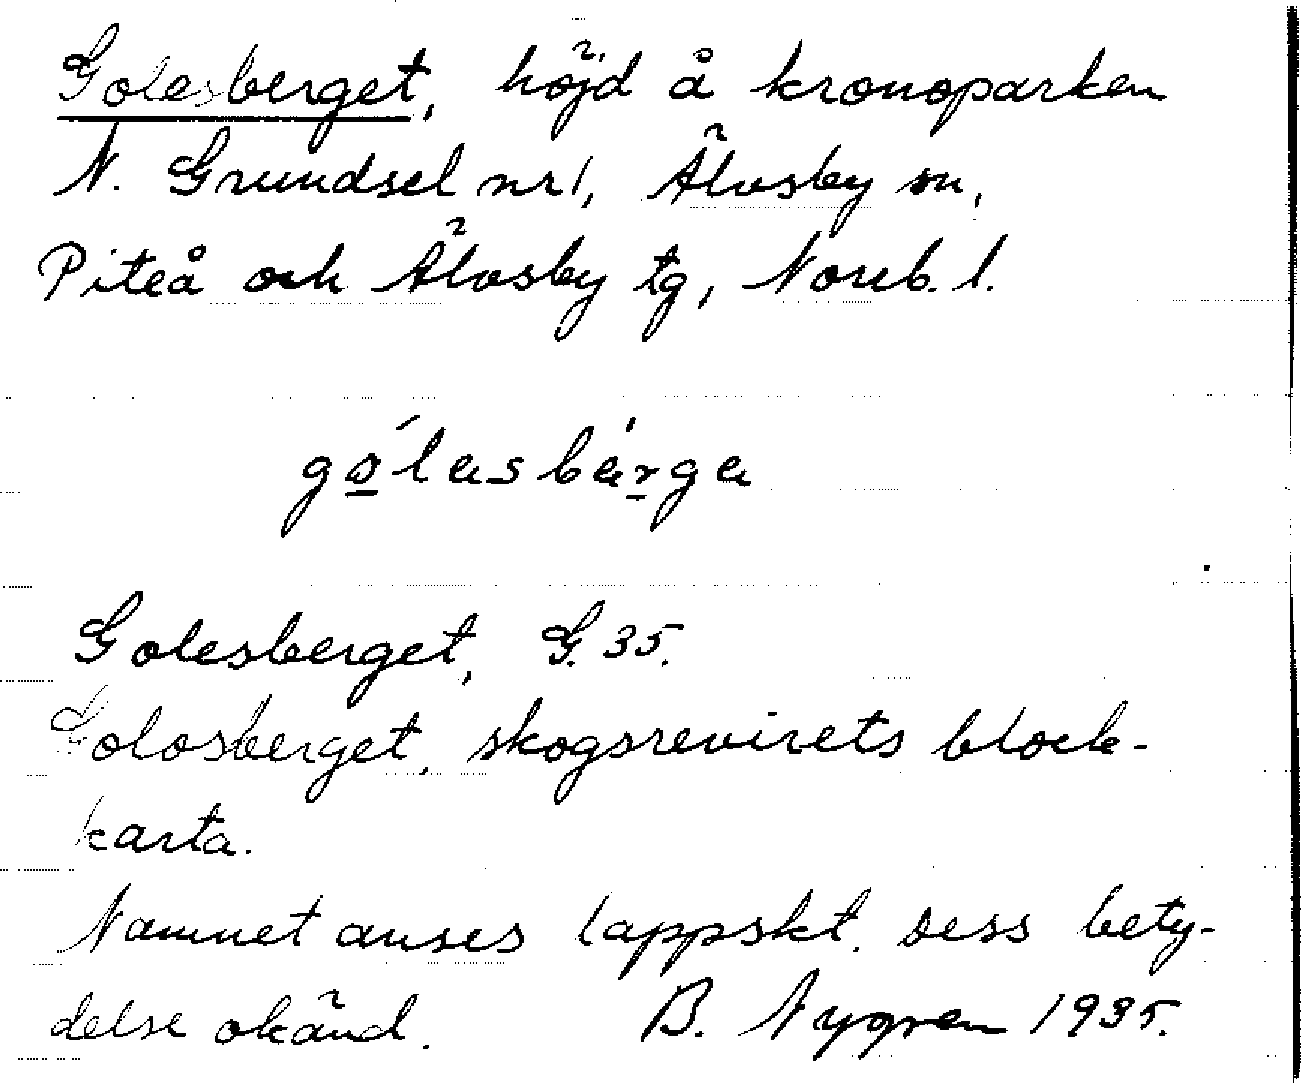 Golesberget, höjd å kronoparken
N. Grundsel nr 1, Älvsby sn,
Piteå och Älvsby tg, Norrb. l.
gólasbárga
Golesberget, G. 35.
Golosberget, skogsrevirets block-
karta.
Namnet anses lappskt. Dess bety-
delse okänd. B. Nygren 1935.